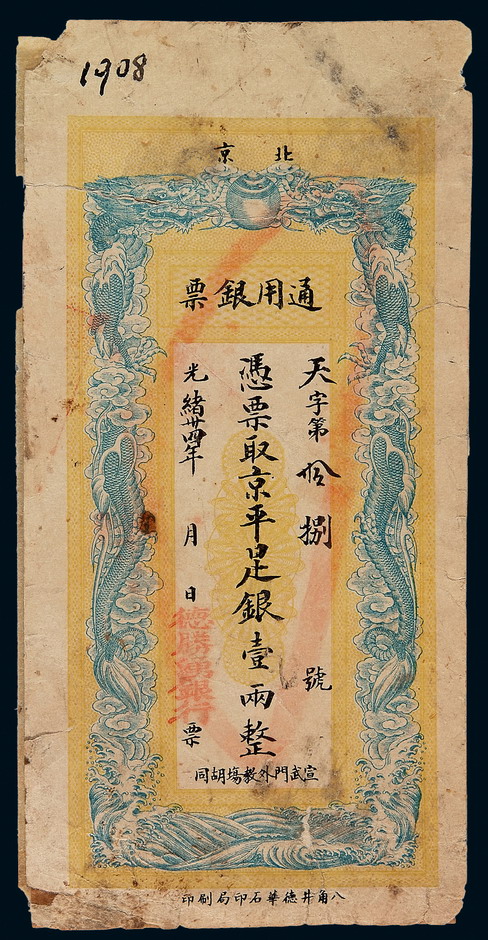 1908
北京
通用銀票
天字第拾捌號
憑票取京平足銀壹兩整
光緒卅四年 月 日 票
德勝 銀行
宣武門外教塲胡同
八角井德華石印局刷印